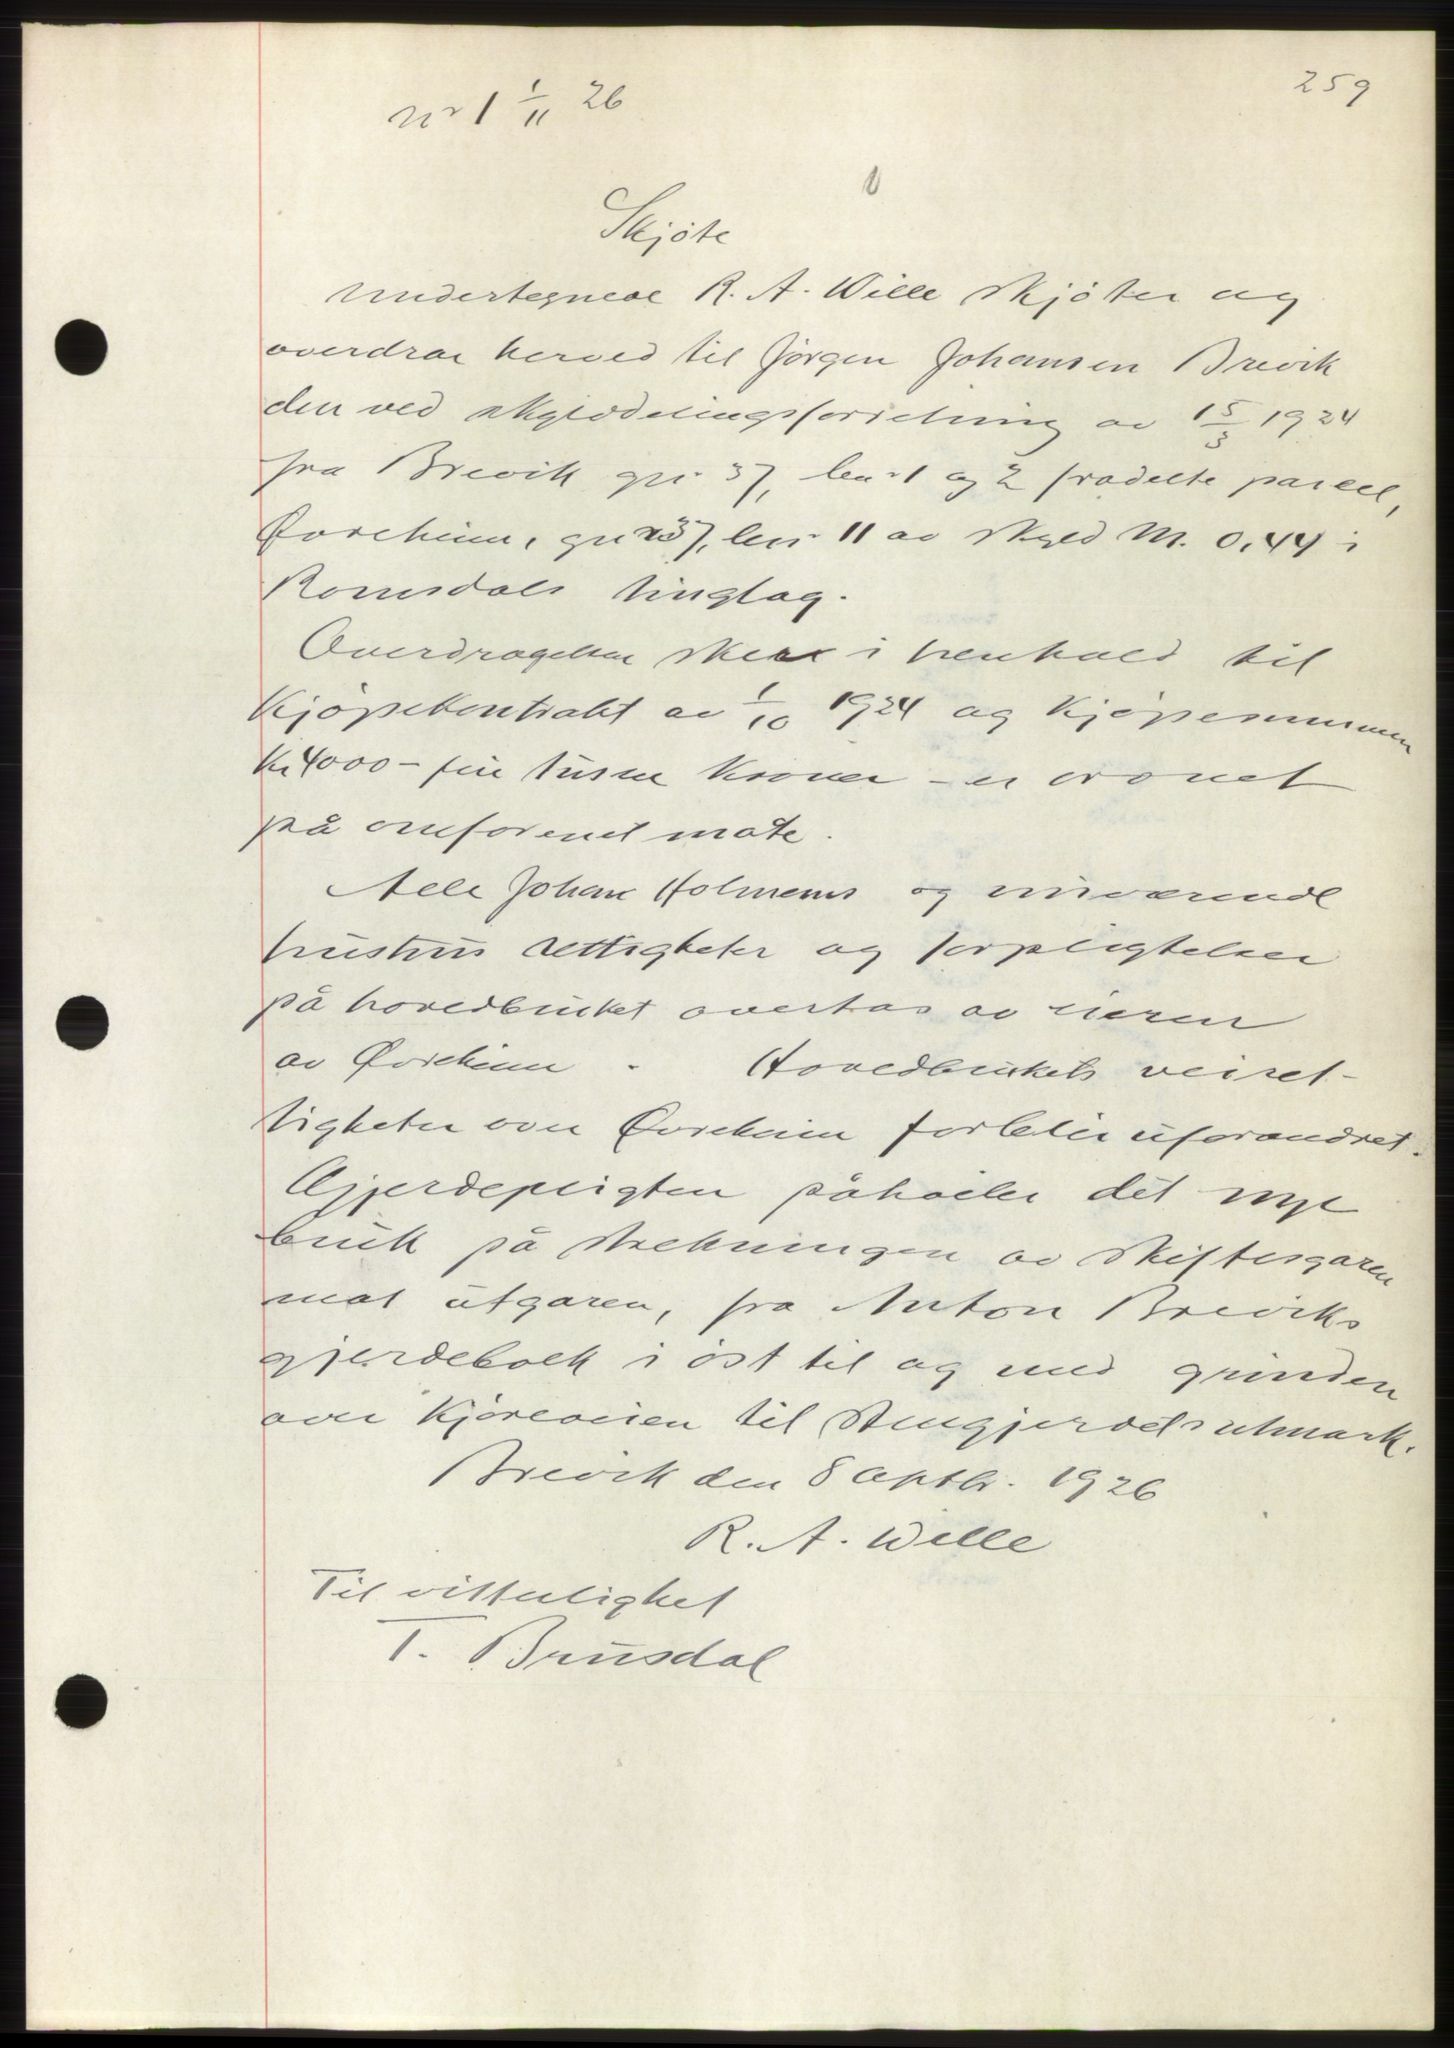 259
nr 1 1/11 26
Skjöte
Undertegnede R. A. Wille skjöter og
overdrar herved til Jörgen Johansen Brevik
den ved skylddelingsforretning av 15/3 1924
fra Brevik gnr 37, bnr 1 og 2 fradelte parcel,
Øvreheim, gnr 37, bnr 11 av skyld M. 0,44 i
Romsdals tinglag.
Overdragelsen skeer i henhold til
kjöpekontrakt av 1/10 1924 og kjöpesummen
Kr 4000 - fire tusen kroner - er ordnet
på omforenet måte.
Alle Johan Holmems og nuværende
hustrus rettigheter og forpligtelser
på hovedbruket overtas av eieren
av Øvreheim. Hovedbrukets veiret-
tigheter over Øvreheim forblir uforandret.
Gjerdepligten påhviler det nye
bruk på strekningen av skiftesgaren
mot utgaren, fra Anton Breviks
gjerdebolk i öst til og med grinden
over kjöreveien til Stengjerdets utmark.
Brevik den 8 septbr. 1926
R. A. Wille
Til vitterlighet
T. Brusdal